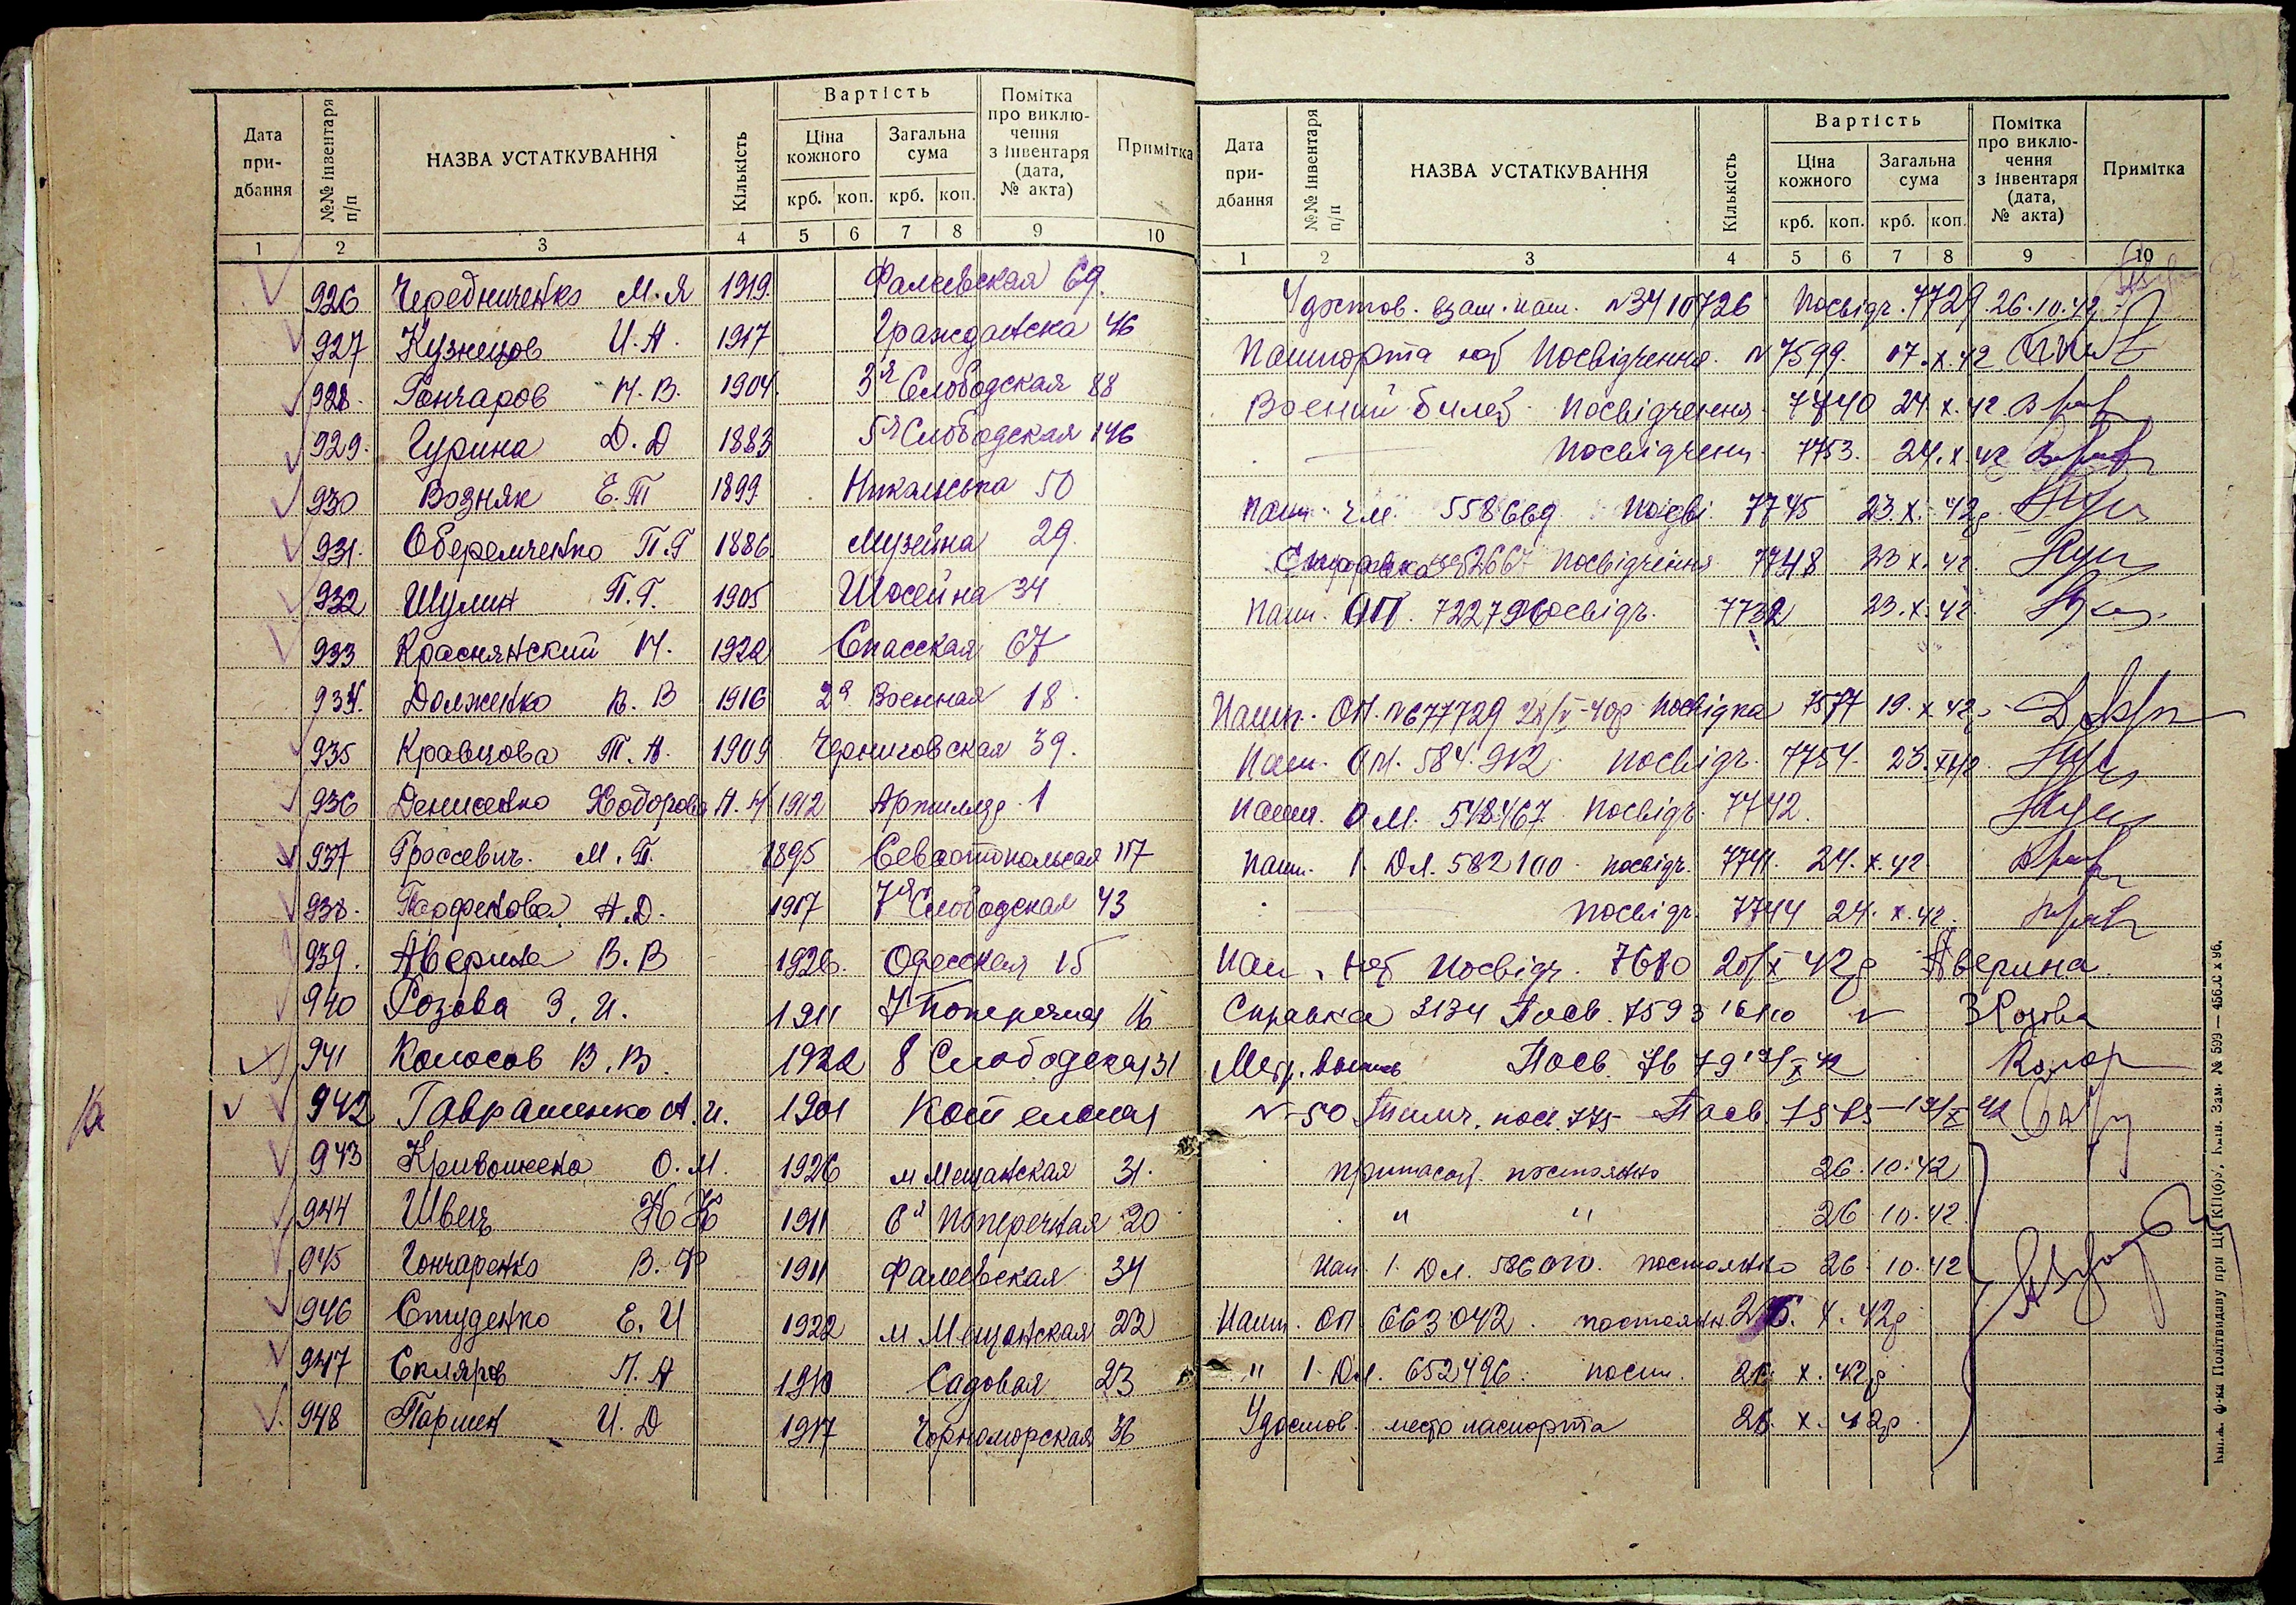 Дата при- дбання №№ інвентаря п/п НАЗВА УСТАТКУВАННЯ Кількість Вартість Ціна кожного Загальна сума крб. коп. крб. коп. Помітка про виклю- чення з інвентаря (дата, № акта) Примітка
1 2 3 4 5 6 7 8 9 10
926 Чередниченко М.Я 1919 Фалеевская 69.
927 Кузнецов И.А. 1917 Гражданска 46
928. Гончаров Н.В. 1904. 3я Слободская 88
929. Гурина Д.Д 1883 5я Слободская 146
930 Возняк Е.Т 1899 Никальська 50
931. Оберемченко П.Г 1886 Музейна 29.
932 Шулин П.Г. 1905 Шосейна 34
933 Краснянский Н. 1922 Спасская 67
934. Долженко В.В 1916 2я Военная 18.
935 Кравцова Т.А. 1909 Черниговская 39.
936 Денисенко Ходорова А.Н 1912 Артилляр 1
937 Гроссевич. М.П. 1895 Севастопольская 117
938. Парфенова А.Д. 1917 7я Слободская 43
939. Аверина В.В 1926. Одесская 15
940 Розова З.И. 1911 7 Поперечная 16
941 Колосов В.В. 1922 8 Слободская 31
942 Гаврашенко А.И. 1901 Котельная
943 Кривошеева О.М. 1926 м Мещанская 31.
944 Швец 1911 6я Поперечная 20
945 Гончаренко В.Ф 1911 Фалеевская 34
946 Студенко Е.И 1922 м Мещанская 22
947 Скляров П.А 1910 Садовая 23
948 Паршен И.Д 1917 Чорноморская 36
Дата при- дбання №№ інвентаря п/п НАЗВА УСТАТКУВАННЯ Кількість Вартість Ціна кожного Загальна сума крб. коп. крб. коп. Помітка про виклю- чення з інвентаря (дата, № акта) Примітка
1 2 3 4 5 6 7 8 9 10
Удостов. взам. паш. №3410726 Посвідч. 7729. 26.10.42
Пашпорта Посвідчення. №7599. 17.X.42
Военный билет. Посвідчення. 7740 24.X.42.
Посвідчен. 7753. 24.X.42
Паш. 558669 Посві. 7745 23.X.42р
Справка 2667 посвідчення 7748 23.X.42.
Паш. ОП. 722796 Посвідч. 7732 23.X.42.
Пашп. ОП. №677729 Посвідка 7577 19.X.42
Паш. ОП. 584.912. посвідч. 7754. 23.X.42.
Пашп. О.М. 548467. посвідч. 7742.
Паш. 1. ДЛ. 582100. посвідч. 7741. 24.X.42
посвідч. 7744 24.X.42.
Паш. Посвідч. 7680 20/X 42р Аверина.
Справка 3134 Посв. 7593 16/10 ЗРозова
Метр. выпись Посв. 7679 19/X 42
№50 Посв.
26.10.42
" " 26.10.42.
Паш. 1. ДЛ. 586070. постоянно 26.10.42
Пашп. ОП 663042. постоян. 26.X.42р
" 1. ДЛ. 652496. пост. 26 X.42р
Удостов. место паспорта 26.X.42р.